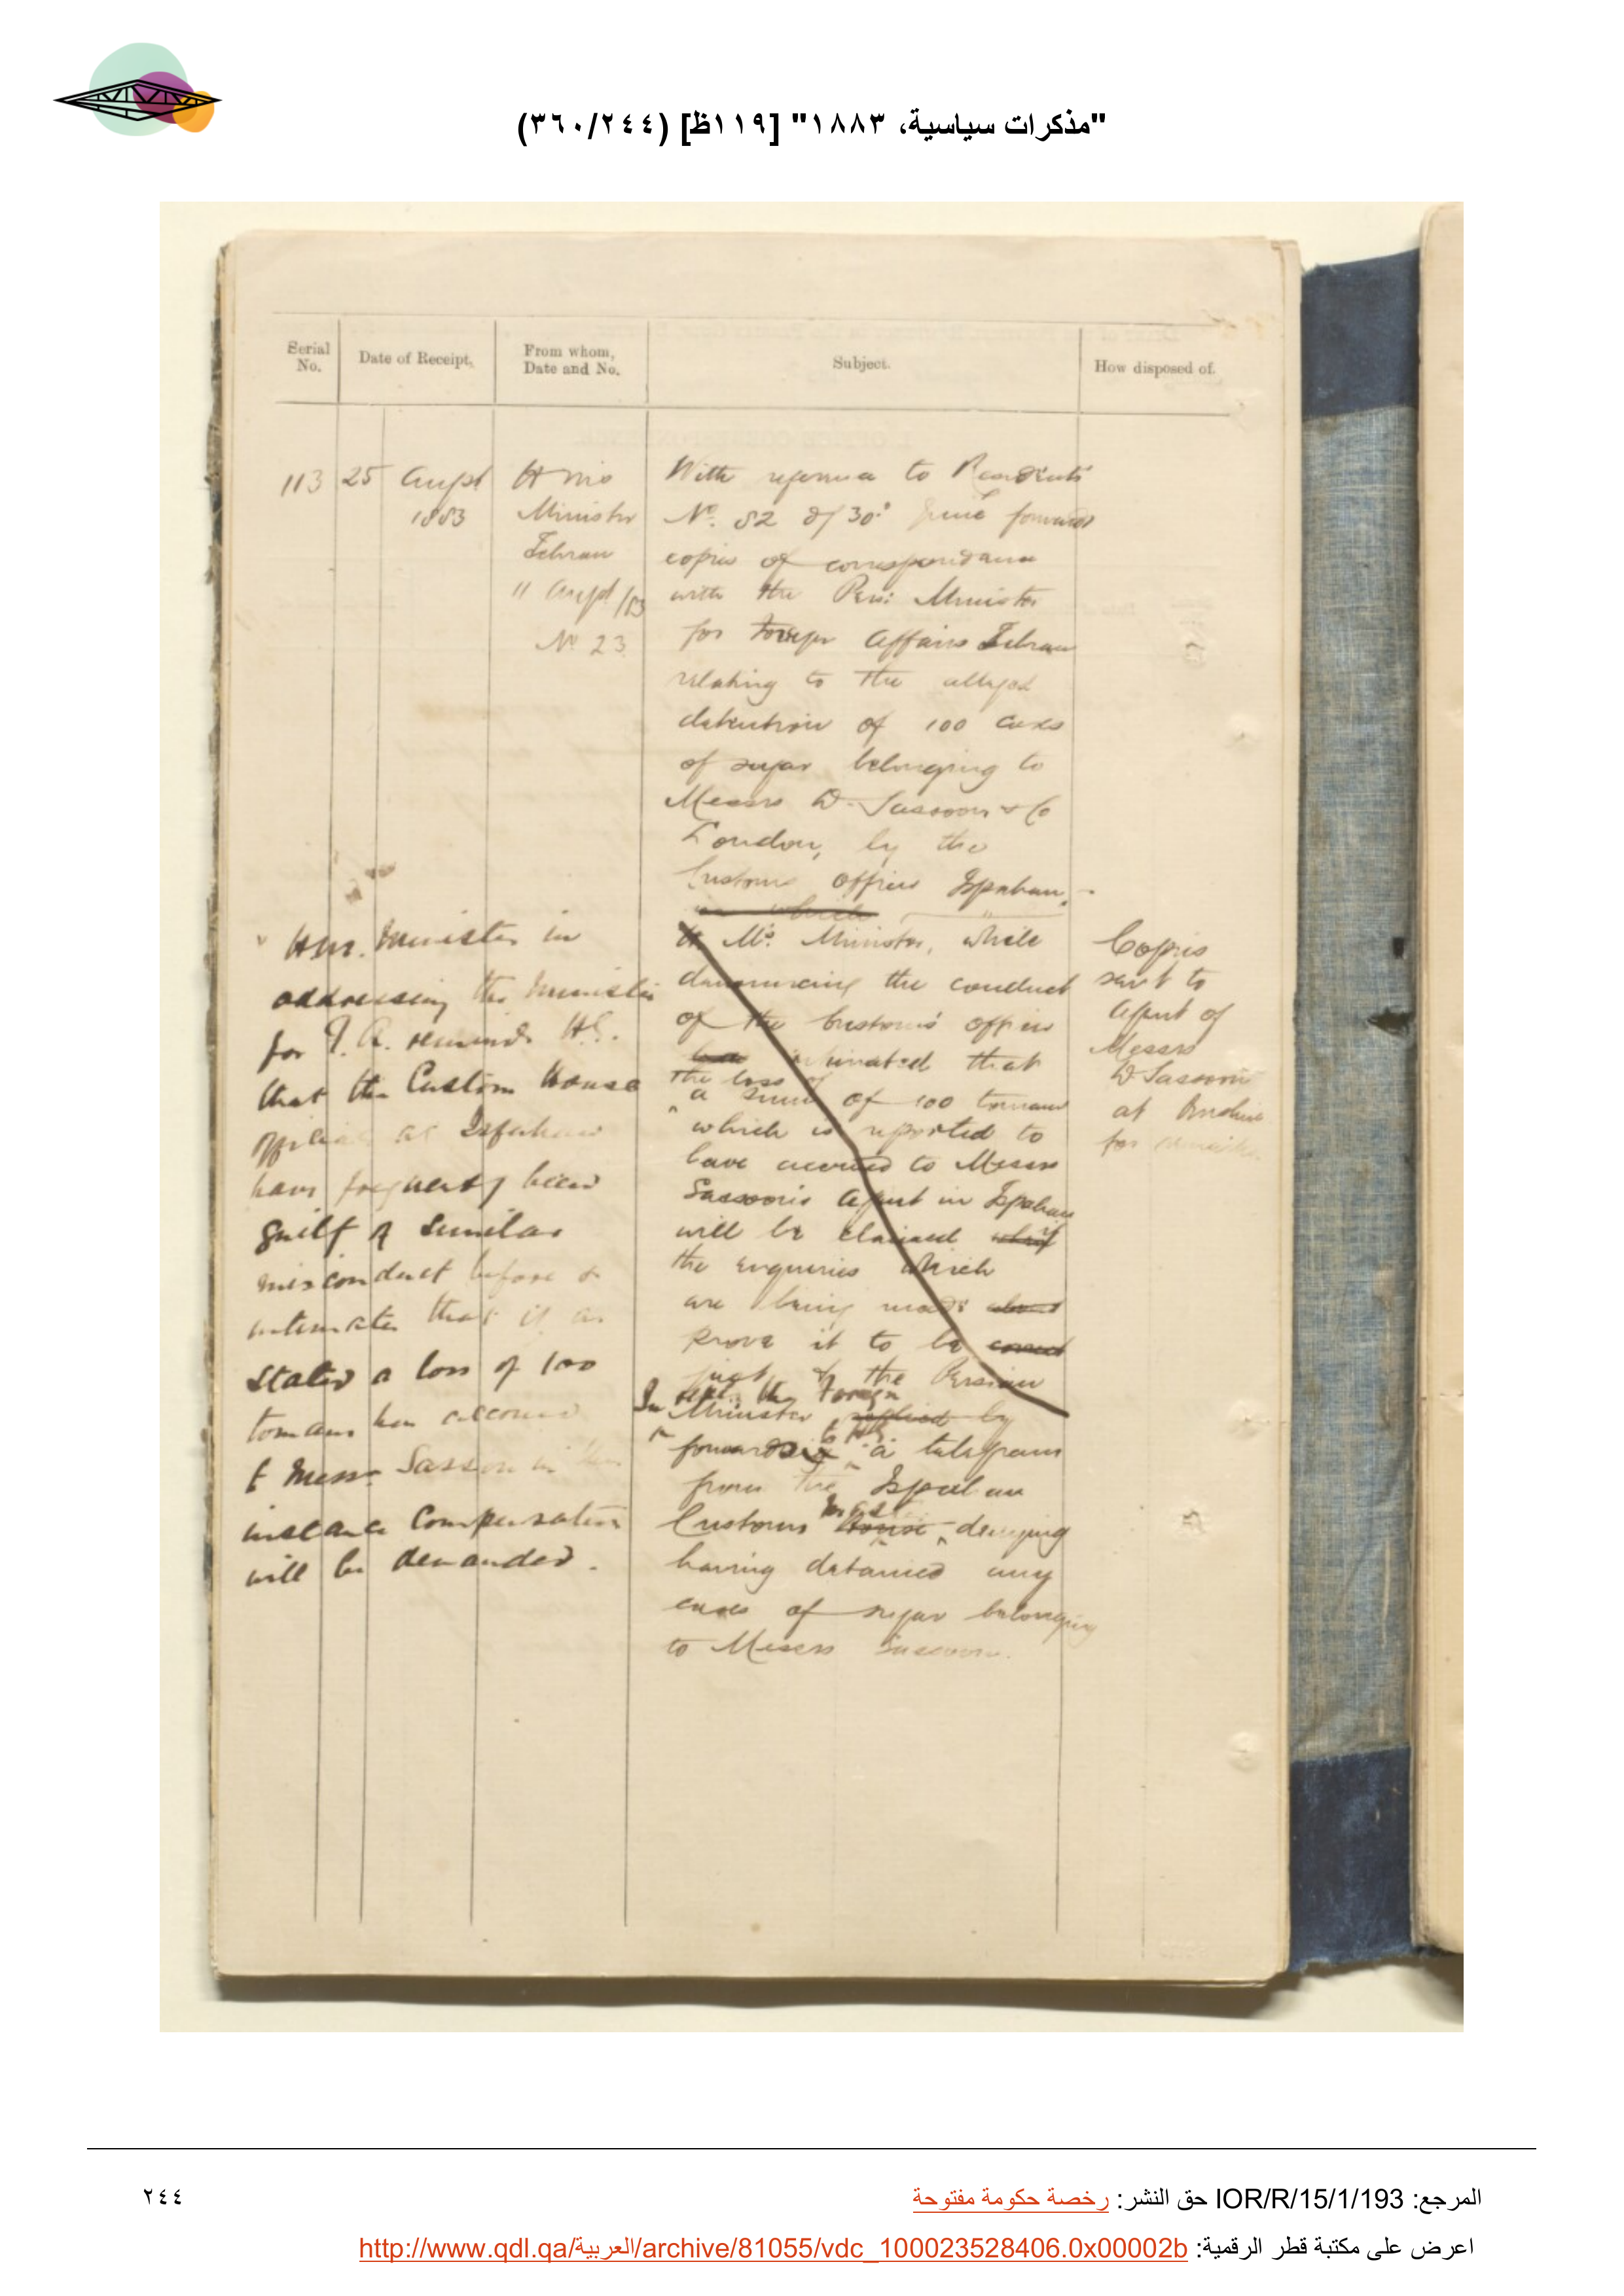 "مذكرات سياسية، ١٨٨٣" [١١٩ظ] (٣٦٠/٢٤٤)
Serial No.
Date of Receipt.
From whom, Date and No.
Subject.
How disposed of.
113
25 August
1883
H Ms
Minister
Tehran
11 August /83
No 23
With reference to Residents
No. 82 of 30th June forwards
copies of correspondence
with the Persn Minister
for Foreign Affairs Tehran
relating to the alleged
detention of 100 cases
of sugar belonging to
Messrs D. Sassoon & Co
London, by the
Customs offices Ispahan.
in which
H Ms. Minister, while
denouncing the conduct
of the Customs' offices
intimated that
the loss of
a sum of 100 tomans
which is reported to
have accrued to Messrs
Sassoon's Agent in Ispahan
will be claimed if
the enquiries which
are being made
prove it to be correct
just & the Persian
In reply the Foreign
Minister replied by
forwards a telegram
from the Ispahan
Customs House denying
having detained any
cases of sugar belonging
to Messrs Sassoon.
H.M. Minister in
addressing the Minister
for F.A. reminds H.E.
that the Custom House
officials at Isfahan
have frequently been
guilty of similar
misconduct before &
intimates that if as
stated a loss of 100
tomans has accrued
to Messrs Sassoon in this
instance compensation
will be demanded.
Copies
sent to
Agent of
Messrs
D Sassoon
at Bushire
for
المرجع: IOR/R/15/1/193 حق النشر: رخصة حكومة مفتوحة
٢٤٤
اعرض على مكتبة قطر الرقمية: http://www.qdl.qa/العربية/archive/81055/vdc_100023528406.0x00002b